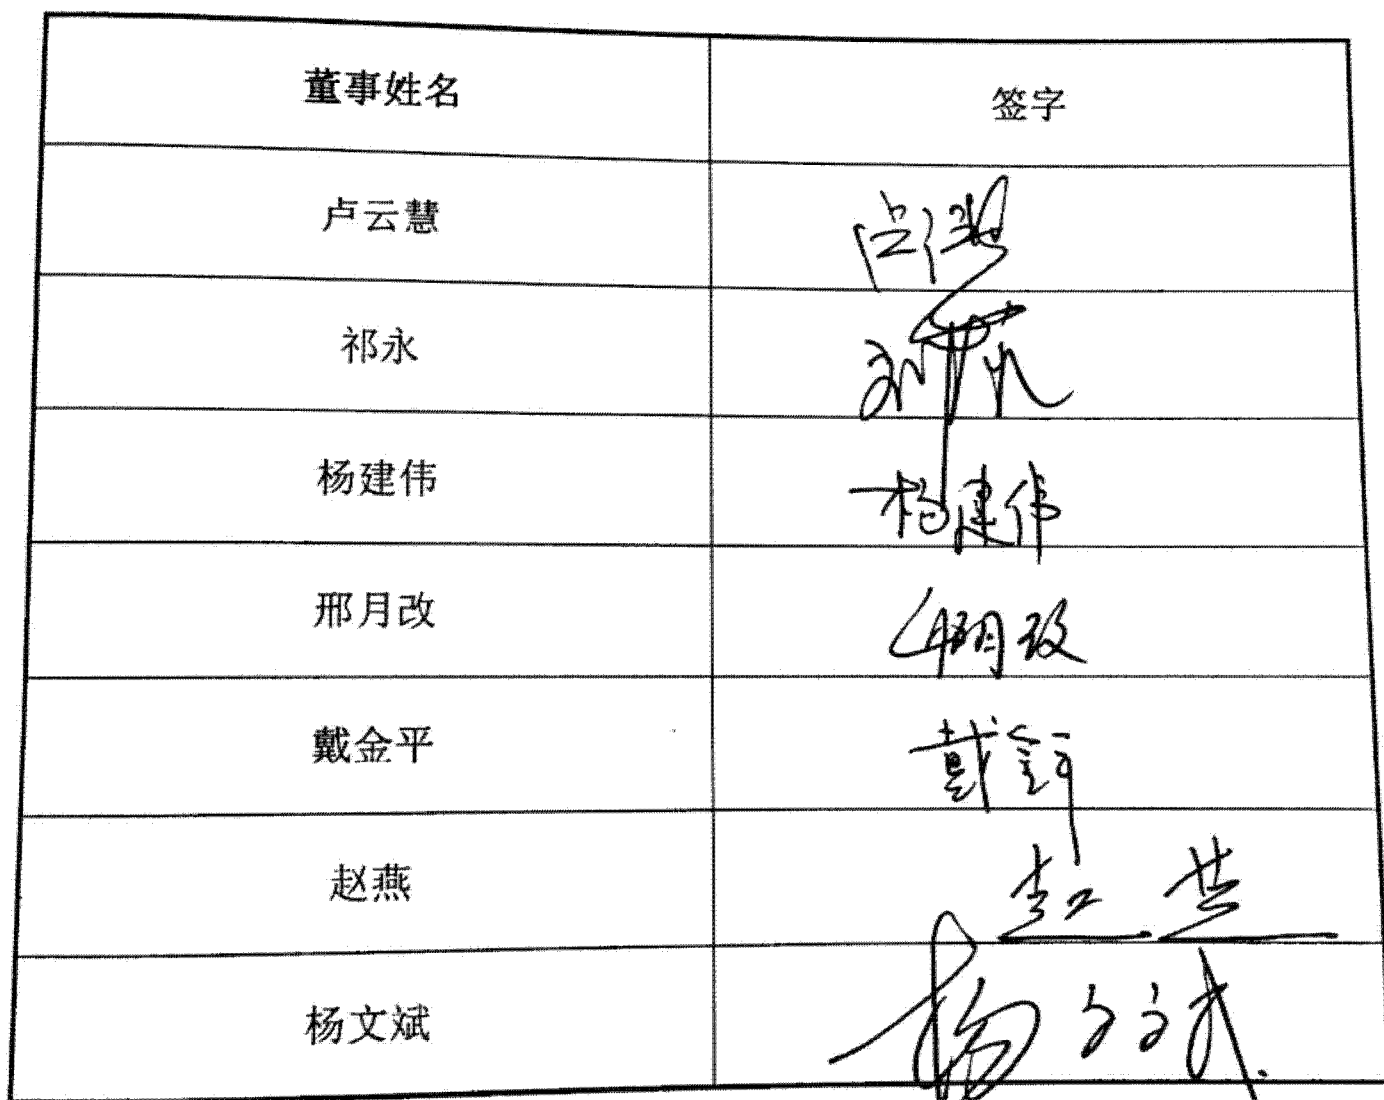 董事姓名 签字
卢云慧
祁永
杨建伟 杨建伟
邢月改
戴金平 戴金平
赵燕 赵燕
杨文斌 杨文斌